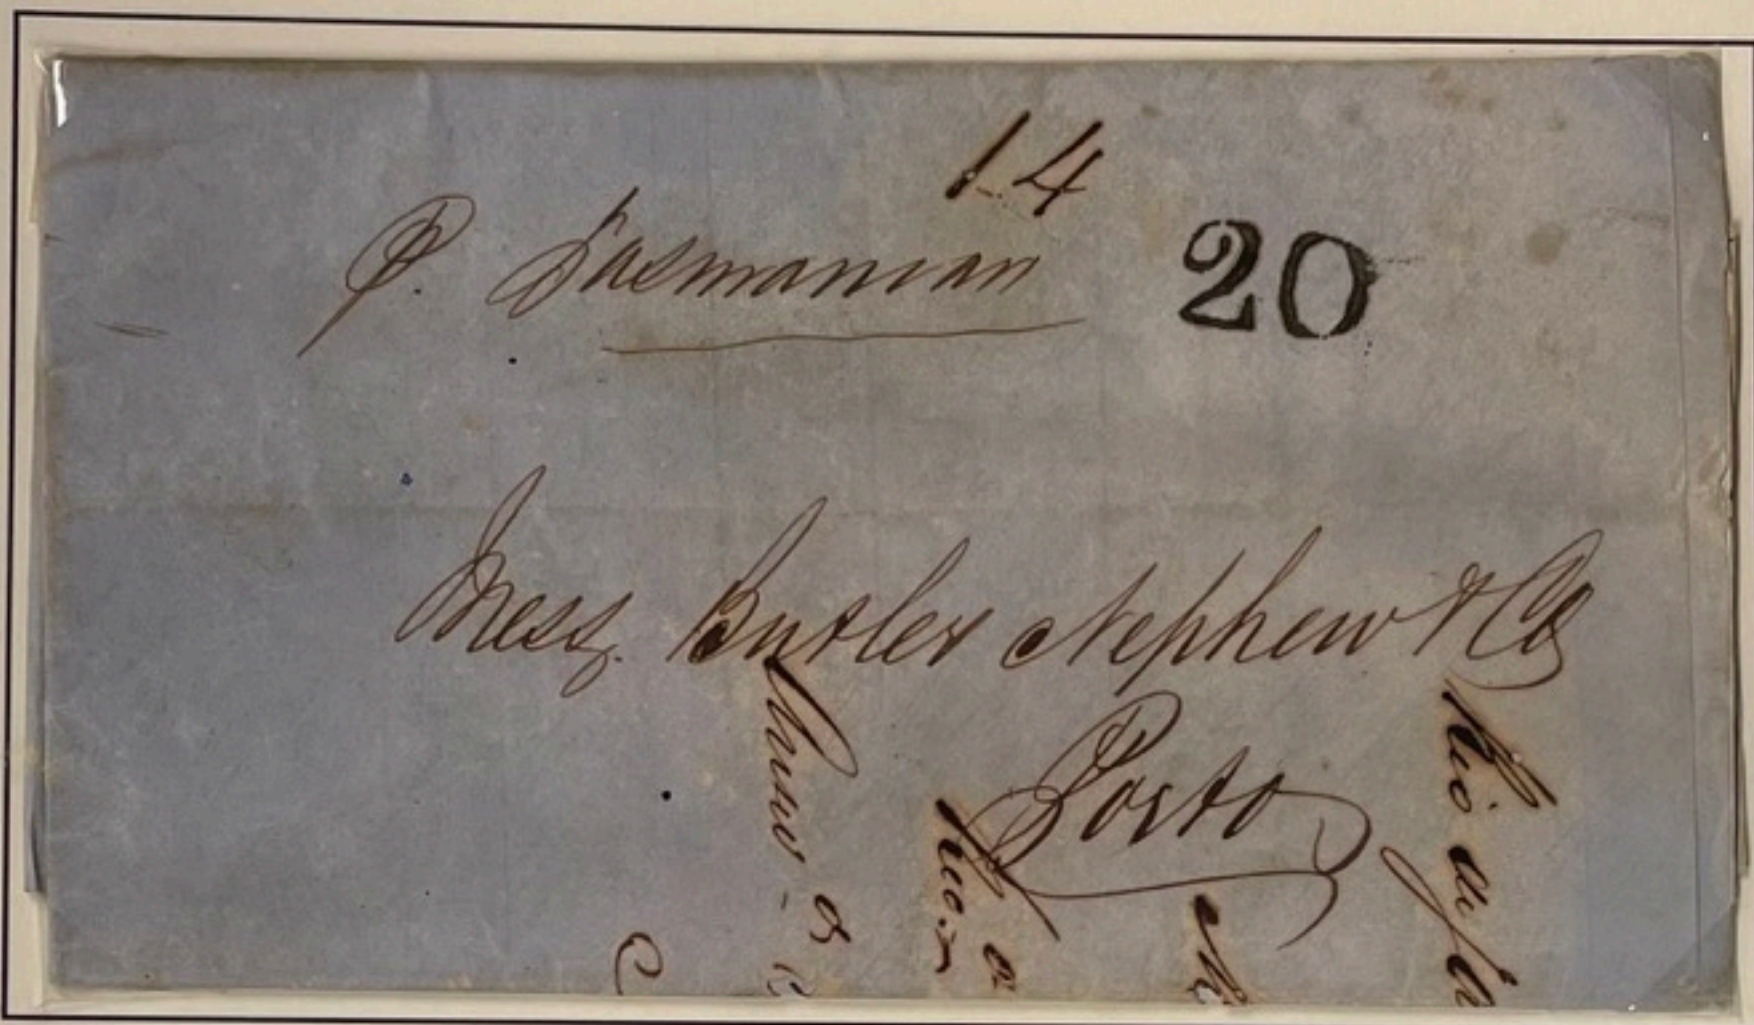 14
P. Tasmanian
20
Mess. Butler Nephew & Co
Porto
Rio de